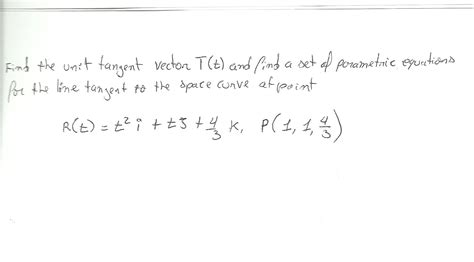 Find the unit tangent vector T(t) and find a set of parametric equations
for the line tangent to the space curve at point
R(t) = t² i + tj + 4/3 k, P(1, 1, 4/3)